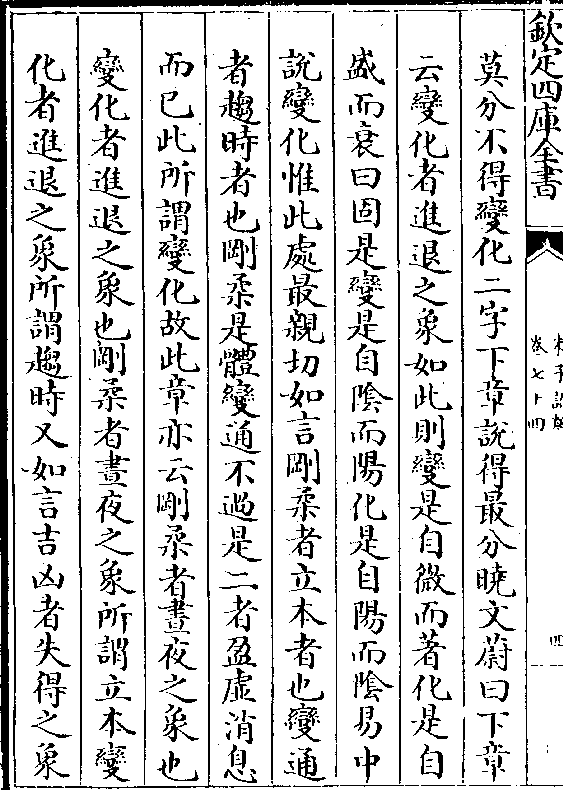 欽定四庫全書
卷七十四
四
莫分不得變化二字下章說得最分曉文蔚曰下章
云變化者進退之象如此則變是自微而著化是自
盛而衰曰固是變是自陰而陽化是自陽而陰易中
說變化惟此處最親切如言剛柔者立本者也變通
者趨時者也剛柔是體變通不過是二者盈虛消息
而已此所謂變化故此章亦云剛柔者晝夜之象也
變化者進退之象也剛柔者晝夜之象所謂立本變
化者進退之象所謂趨時又如言吉凶者失得之象